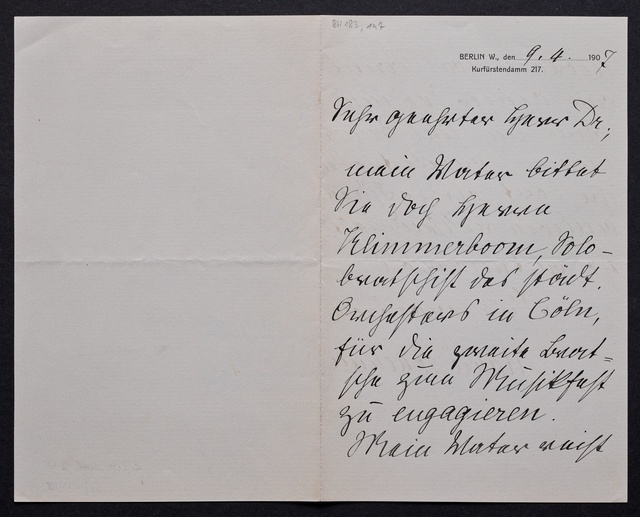 BH 183, 147
BERLIN W., den 9. 4. 1907
Kurfürstendamm 217.
Sehr geehrter Herr Dr,
mein Vater bittet
Sie doch Herrn
Klimmerboom, Solo-
bratschist des städt.
Orchesters in Cöln,
für die zweite Brat=
sche zum Musikfest
zu engagieren.
Mein Vater reist